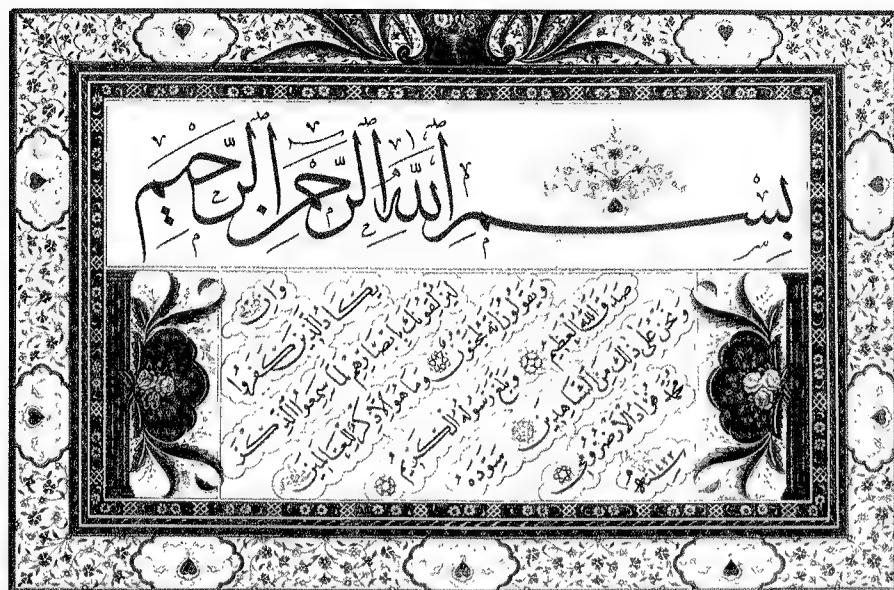 بِسْمِ اللّٰهِ الرَّحْمٰنِ الرَّحِيمِ
وَاِنْ
يَكَادُ الَّذِينَ كَفَرُوا
لَيُزْلِقُونَكَ بِاَبْصَارِهِمْ لَمَّا سَمِعُوا الذِّكْرَ
وَيَقُولُونَ اِنَّهُ لَمَجْنُونٌ وَمَا هُوَ اِلَّا ذِكْرٌ لِلْعَالَمِينَ
صَدَقَ اللّٰهُ الْعَظِيمُ وَبَلَّغَ رَسُولُهُ الْكَرِيمُ
وَنَحْنُ عَلٰى ذٰلِكَ مِنَ الشَّاهِدِينَ سَوَّدَهُ
محمد فؤاد الارضرومى